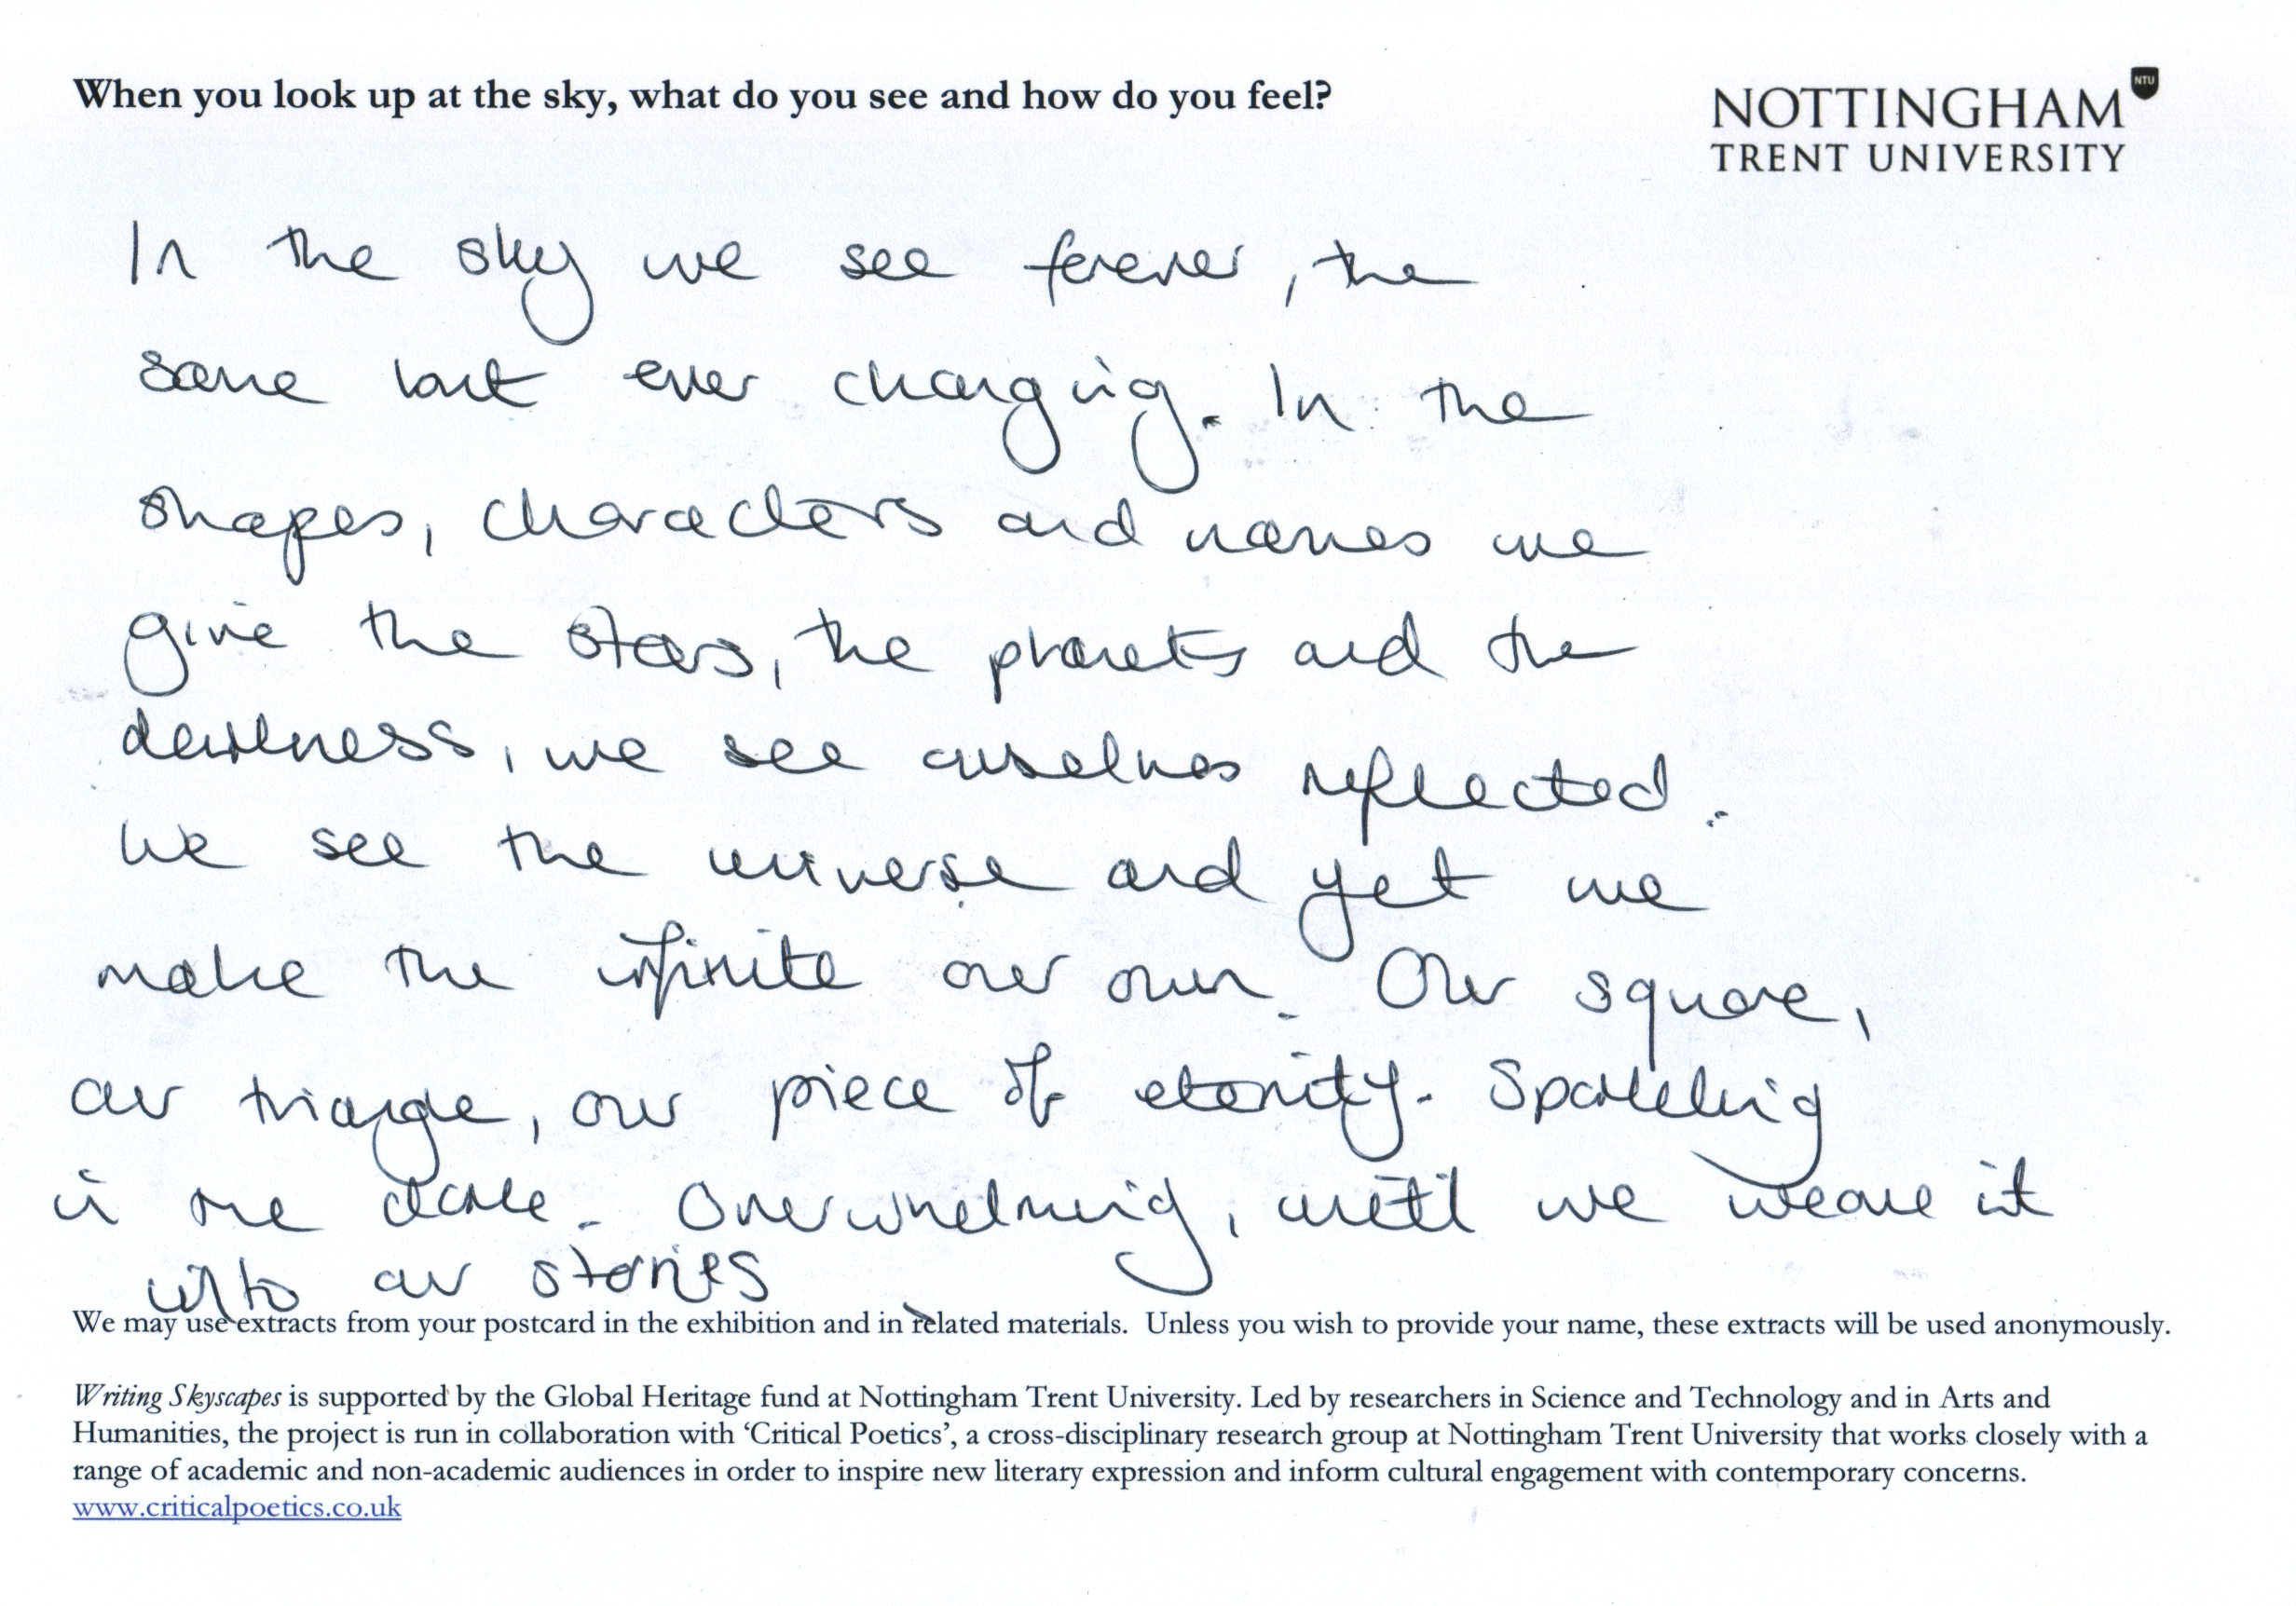 When you look up at the sky, what do you see and how do you feel?
NTU
NOTTINGHAM
TRENT UNIVERSITY
In the sky we see forever, the
same but ever changing. In the
shapes, characters and names we
give the stars, the planets and the
darkness, we see ourselves reflected.
We see the universe and yet we
make the infinite our own. Our square,
our triangle, our piece of eternity. Sparkling
in the dark. Overwhelming, until we weave it
into our stories
We may use extracts from your postcard in the exhibition and in related materials. Unless you wish to provide your name, these extracts will be used anonymously.
Writing Skyscapes is supported by the Global Heritage fund at Nottingham Trent University. Led by researchers in Science and Technology and in Arts and
Humanities, the project is run in collaboration with ‘Critical Poetics’, a cross-disciplinary research group at Nottingham Trent University that works closely with a
range of academic and non-academic audiences in order to inspire new literary expression and inform cultural engagement with contemporary concerns.
www.criticalpoetics.co.uk